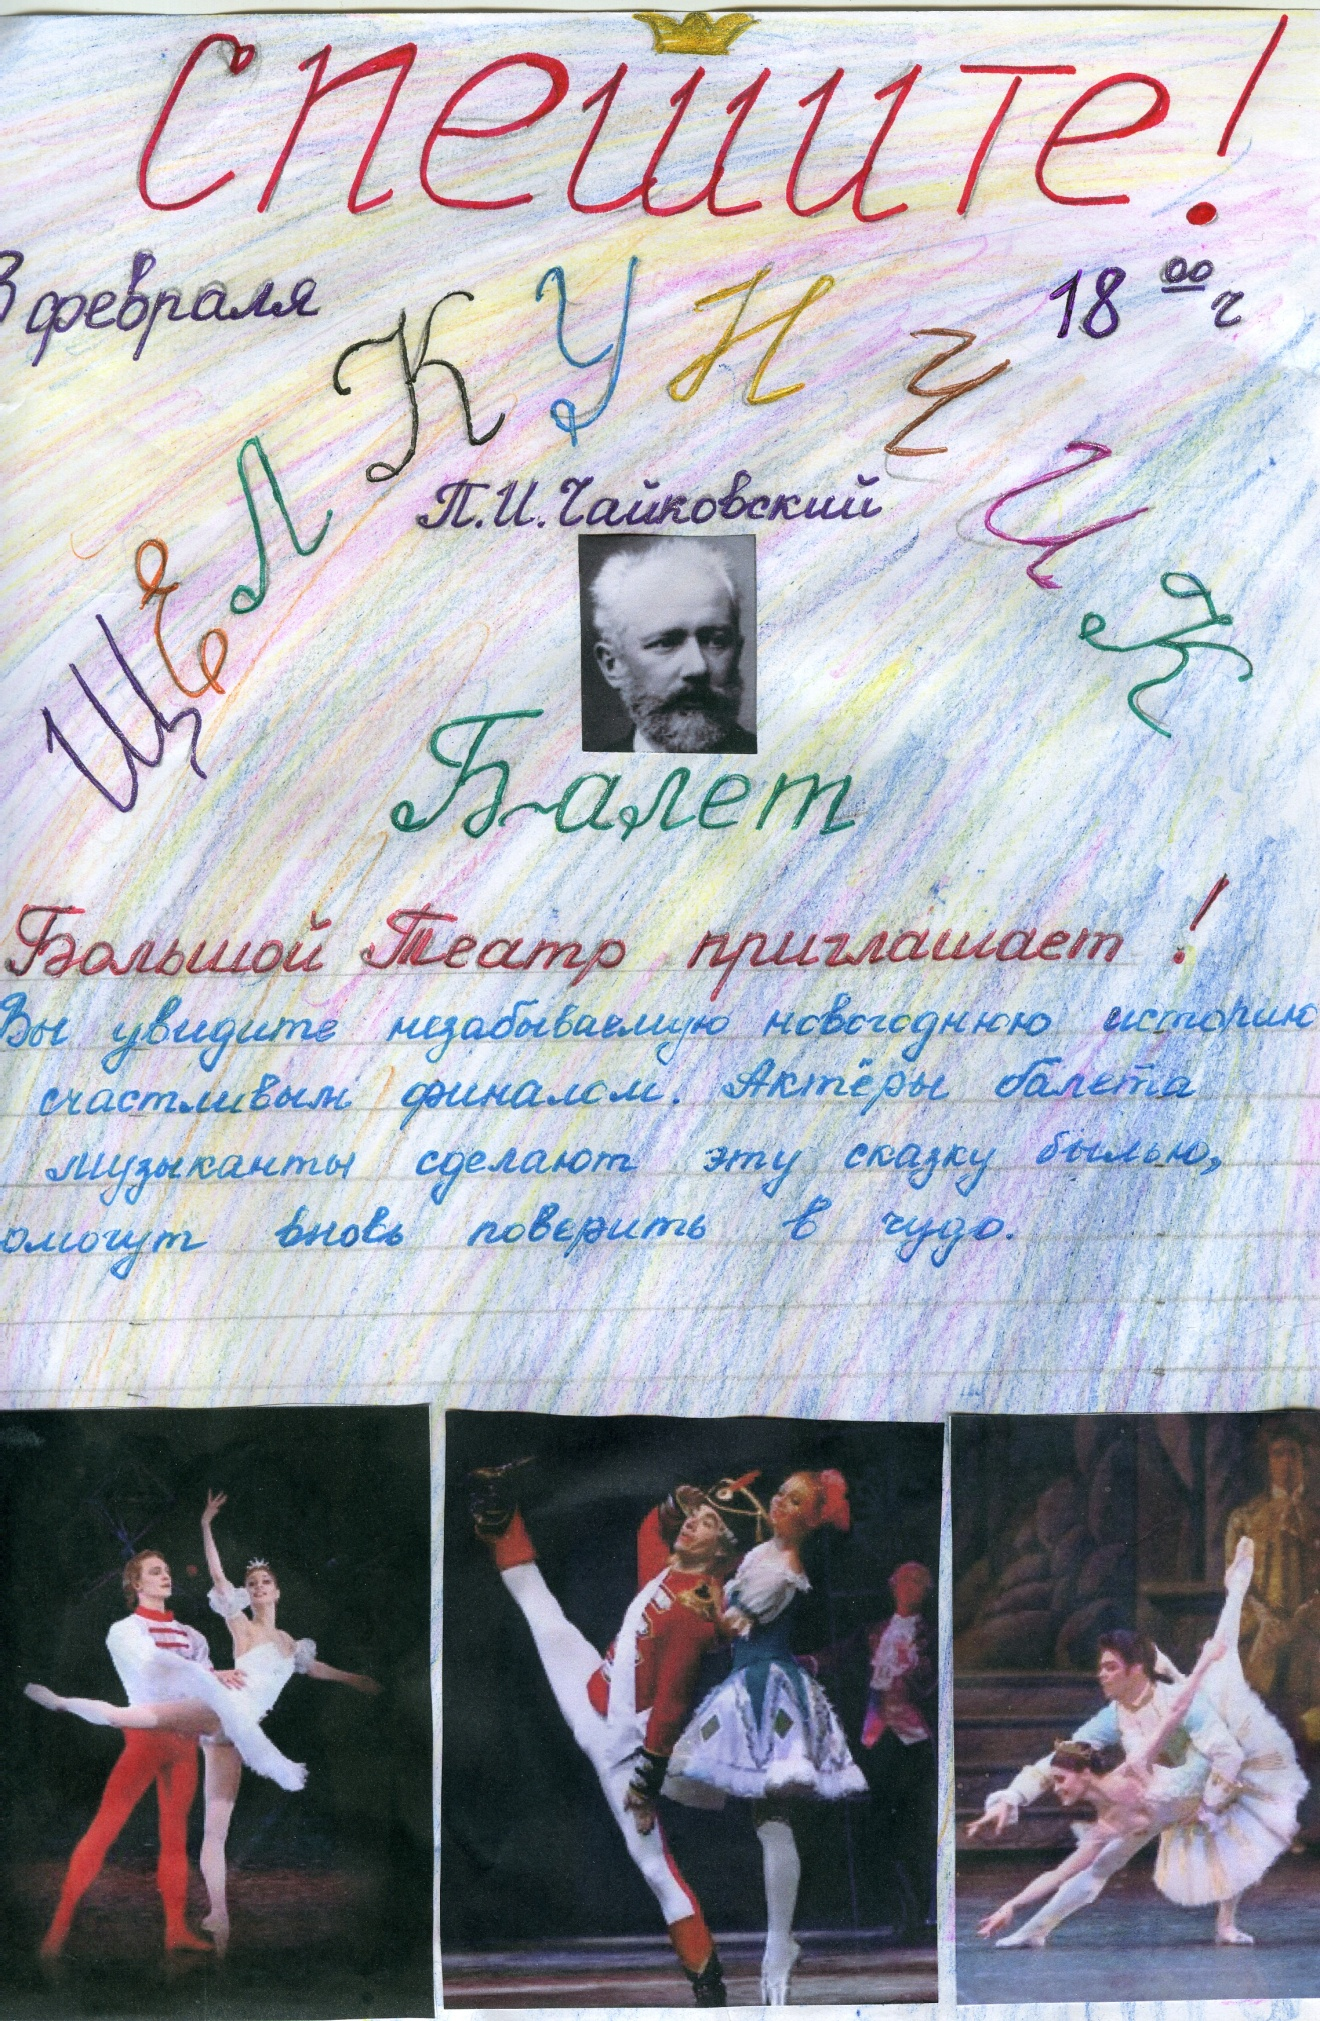 Спешите!
3 февраля
18 00 ч
ЩЕЛКУНЧИК
П.И. Чайковский
Балет
Большой Театр приглашает!
Вы увидите незабываемую новогоднюю историю
счастливым финалом. Актёры балета
музыканты сделают эту сказку былью,
омогут вновь поверить в чудо.